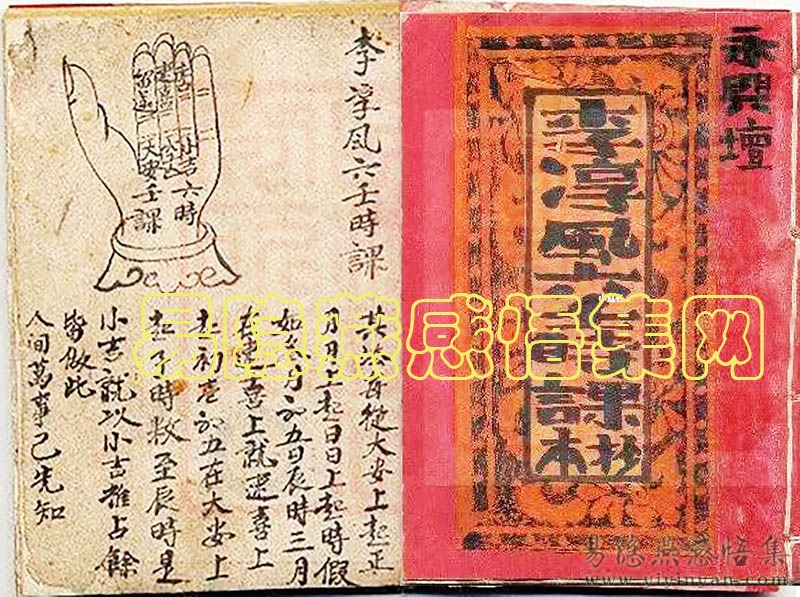 永興壇
李淳風六壬時課抄本
李淳風六壬時課
六時
壬課
大安
小吉
其法每從大安上起正
月月上起日日上起時假
如三月初五日辰時三月
在速喜上就速喜上
起初壹初五在大安上
起子時数至辰時是
小吉就以小吉推占餘
皆倣此
人間萬事已先知
易隐燕感悟集网
易隐燕感悟集
www.yiyinyan.com